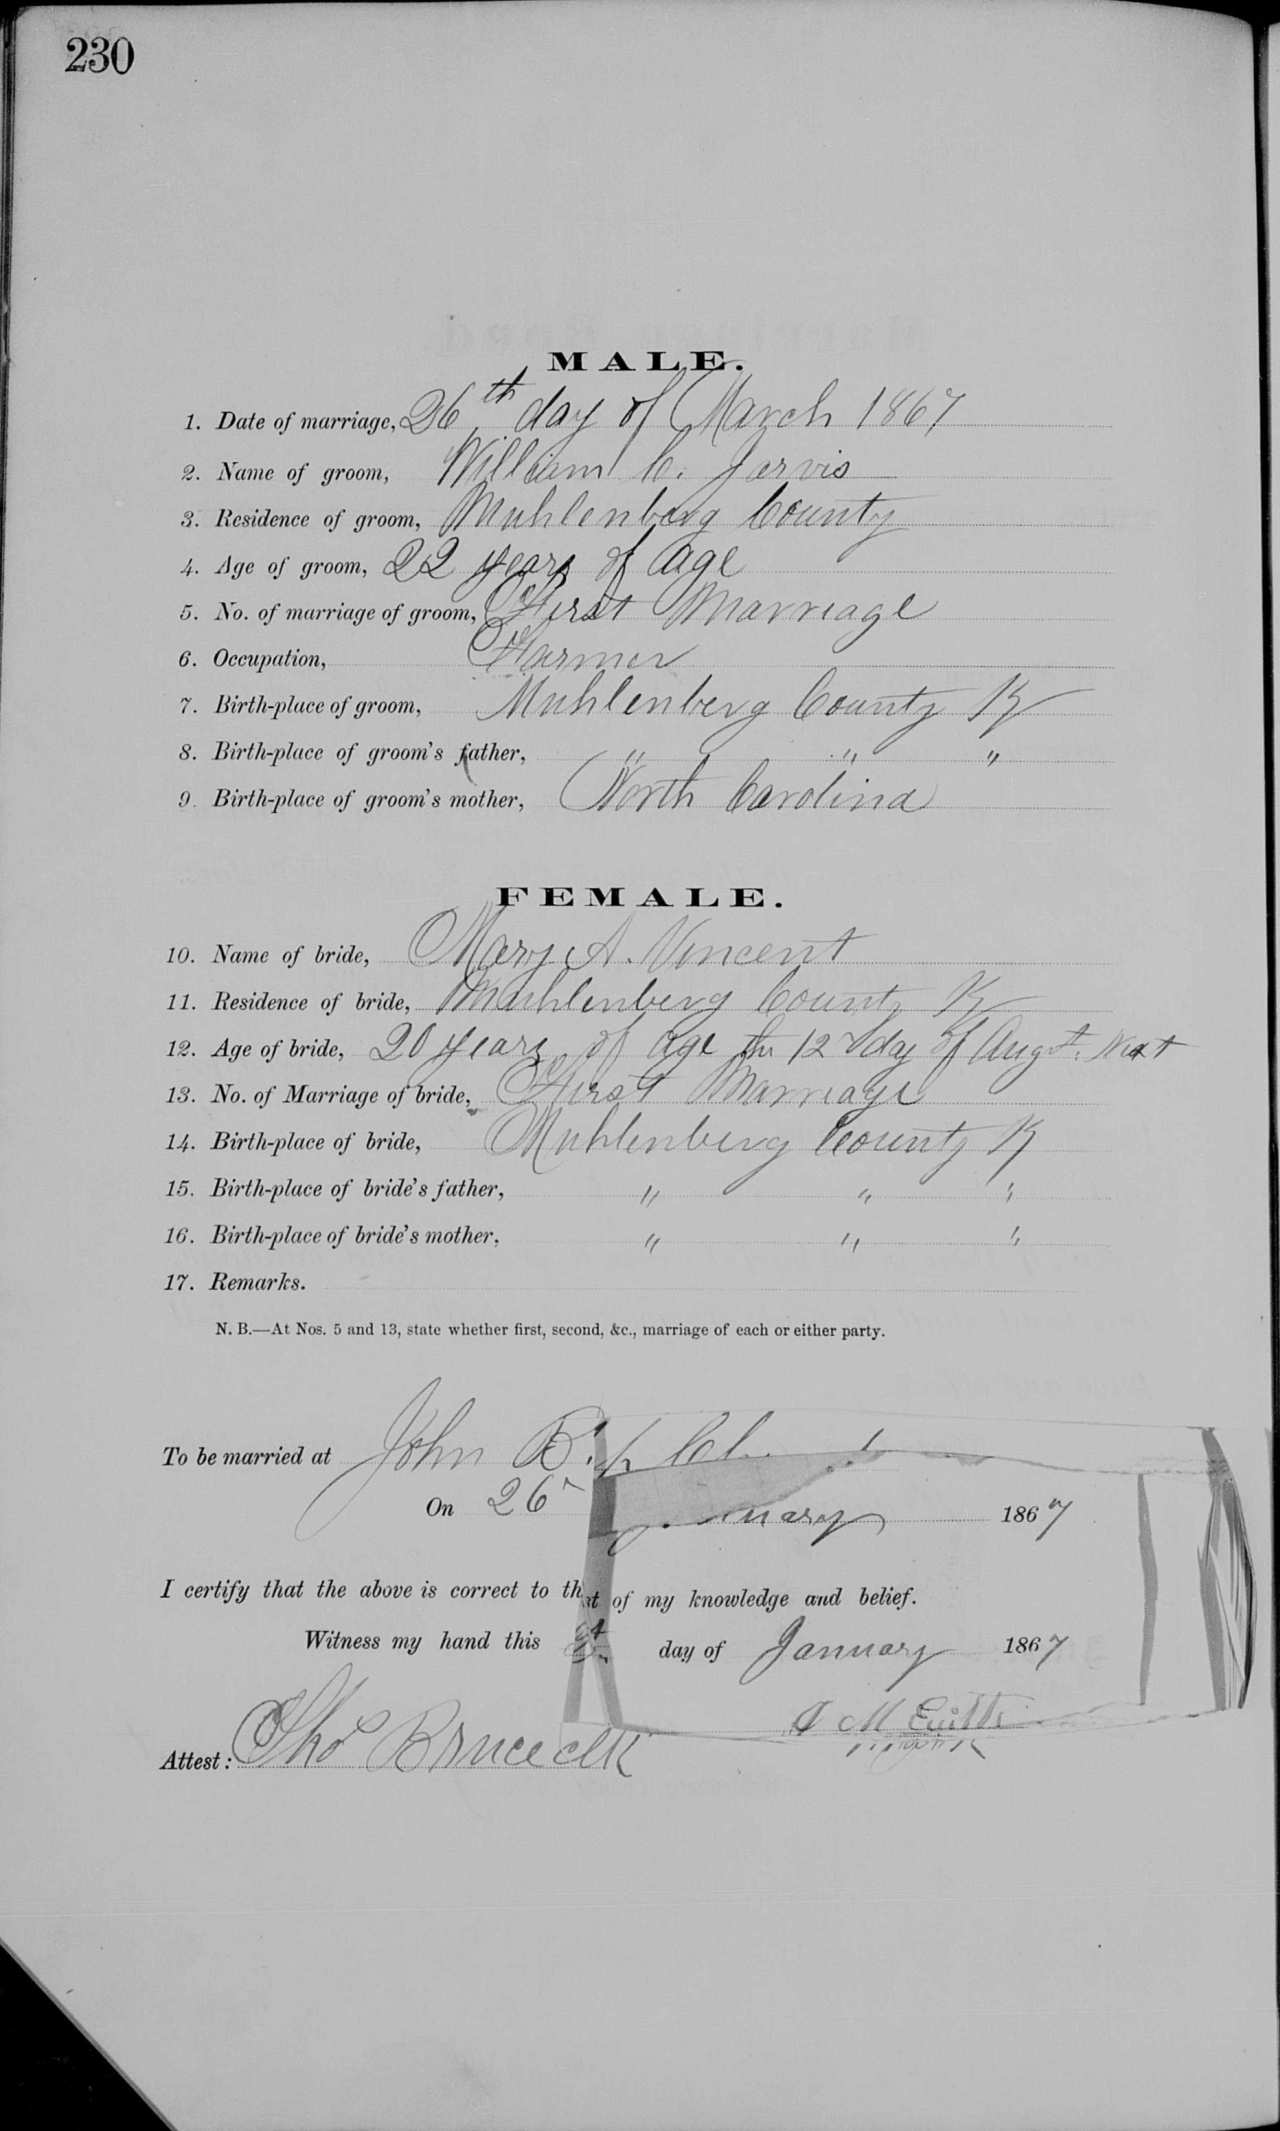 230
MALE.
1. Date of marriage, 26th day of March 1867
2. Name of groom, William C. Jarvis
3. Residence of groom, Muhlenberg County
4. Age of groom, 22 years of age
5. No. of marriage of groom, First Marriage
6. Occupation, Farmer
7. Birth-place of groom, Muhlenberg County Ky
8. Birth-place of groom's father, " " "
9. Birth-place of groom's mother, North Carolina
FEMALE.
10. Name of bride, Mary A. Vincent
11. Residence of bride, Muhlenberg County Ky
12. Age of bride, 20 years of age the 12 day of Augst. Next
13. No. of Marriage of bride, First Marriage
14. Birth-place of bride, Muhlenberg County Ky
15. Birth-place of bride's father, " " "
16. Birth-place of bride's mother, " " "
17. Remarks.
N. B.—At Nos. 5 and 13, state whether first, second, &c., marriage of each or either party.
To be married at John
On 26 1867
I certify that the above is correct to th st of my knowledge and belief.
Witness my hand this day of January 1867
Attest: Thos Bruce clk